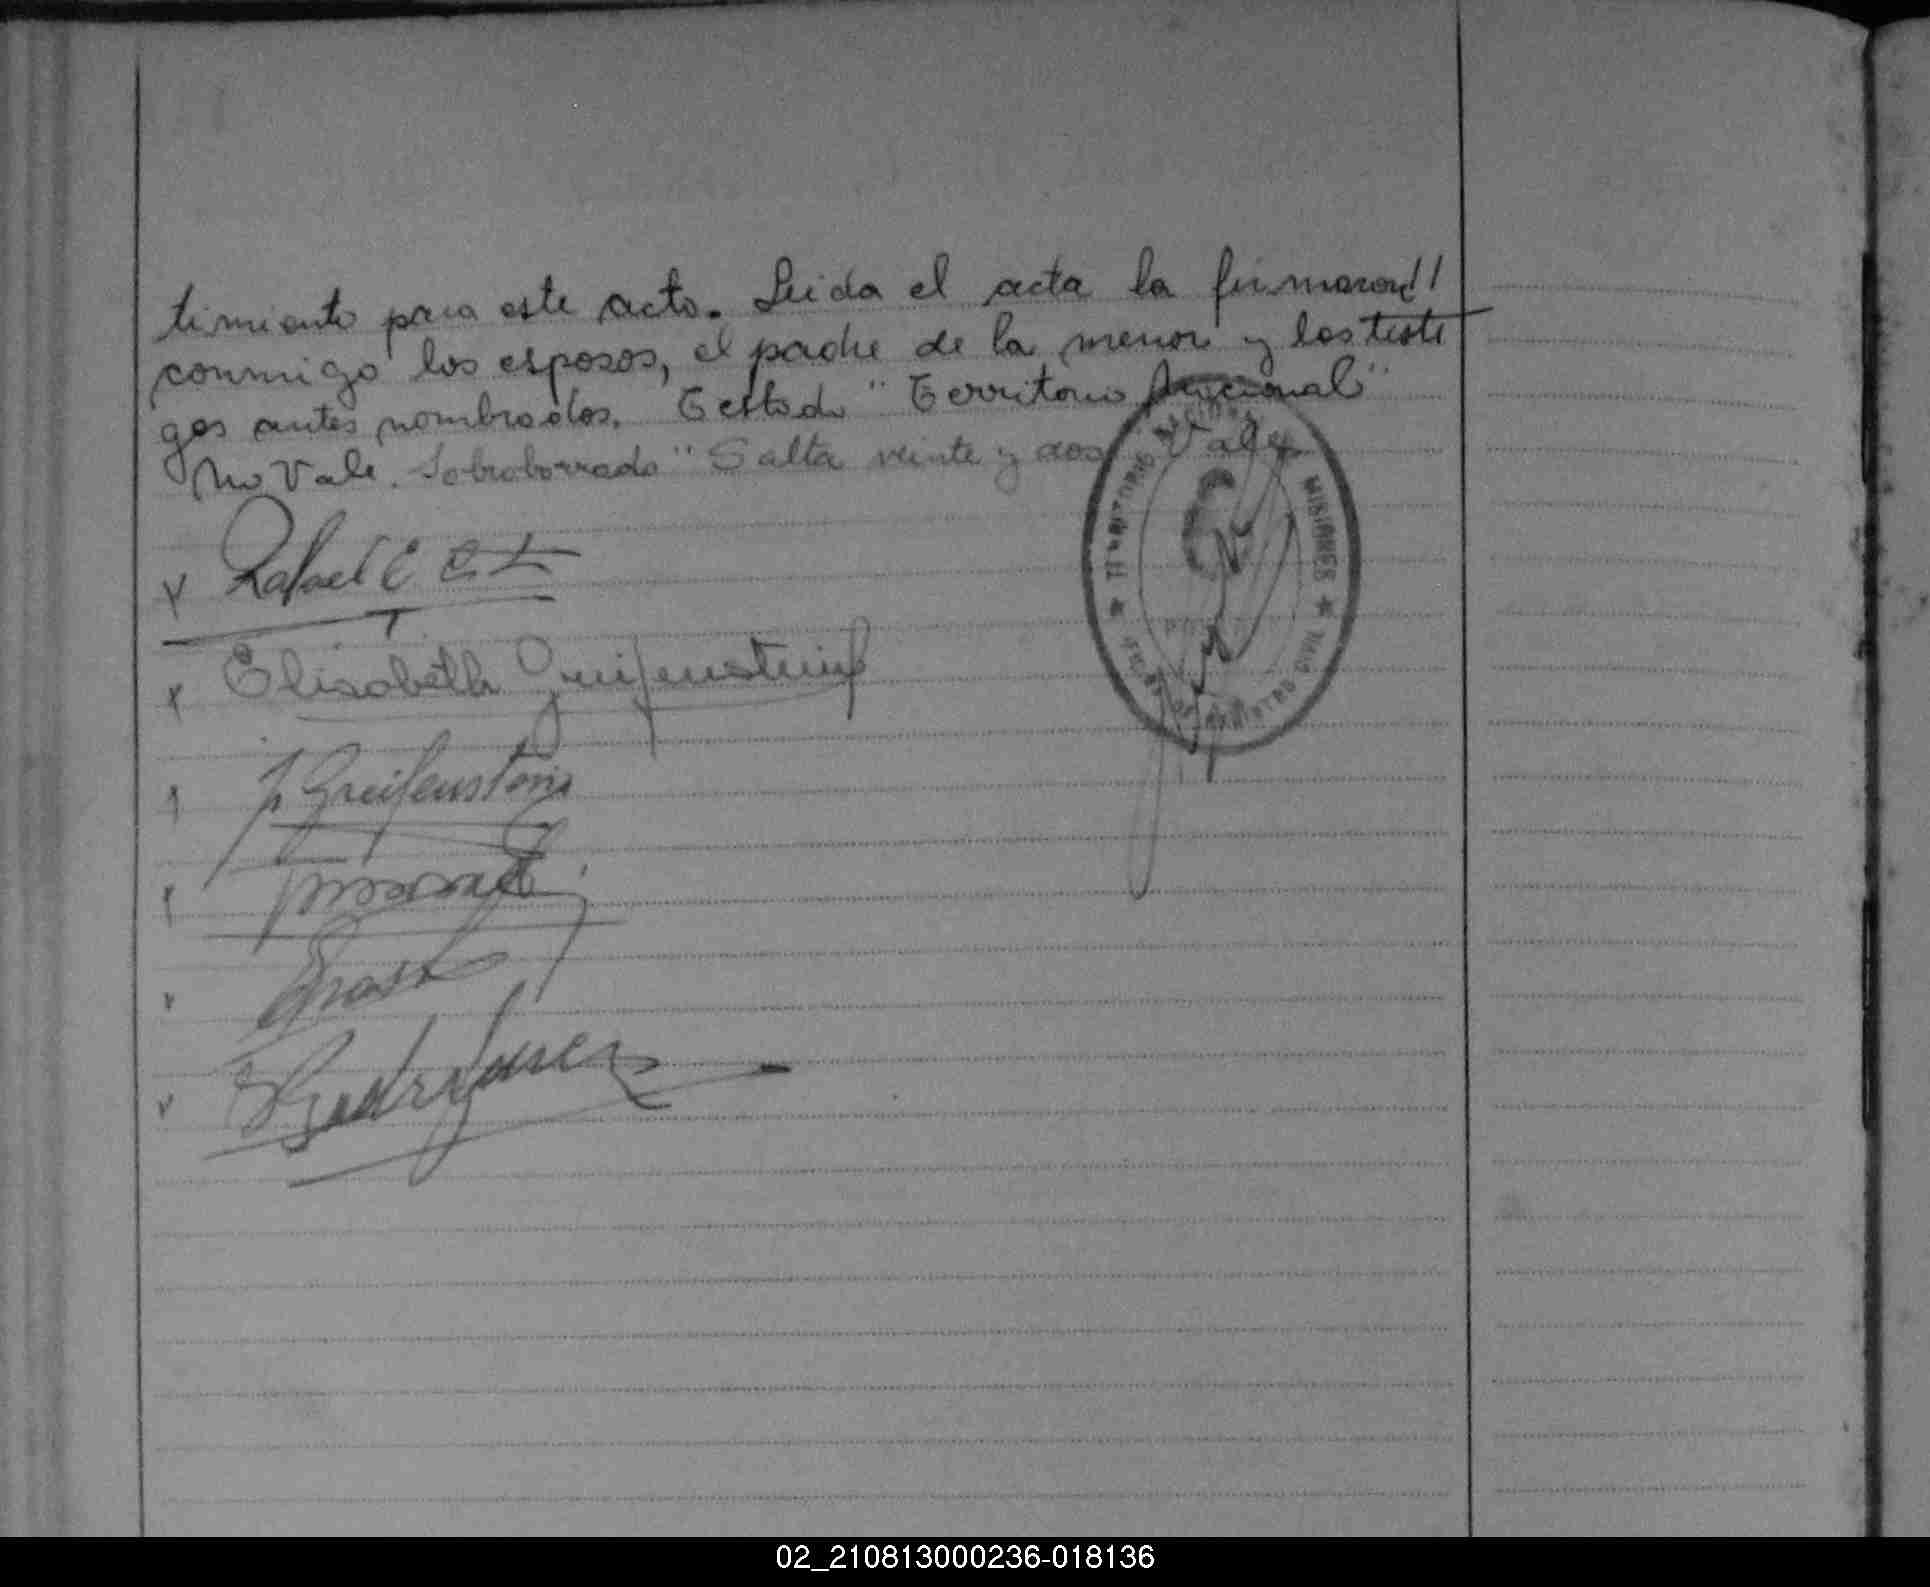 timiento para este acto. Leida el acta la firmaron//
conmigo los esposos, el padre de la menor y los testi
gos antes nombrados. Testado "Territorio Nacional"
No Vale. Sobreborrado "Salta veinte y dos" Vale
Rafael E
Elisabeth Greifenstein
J. Greifenstein
Rodriguez
TERRITORIO NACIONAL MISIONES
REGISTRO CIVIL
02_210813000236-018136